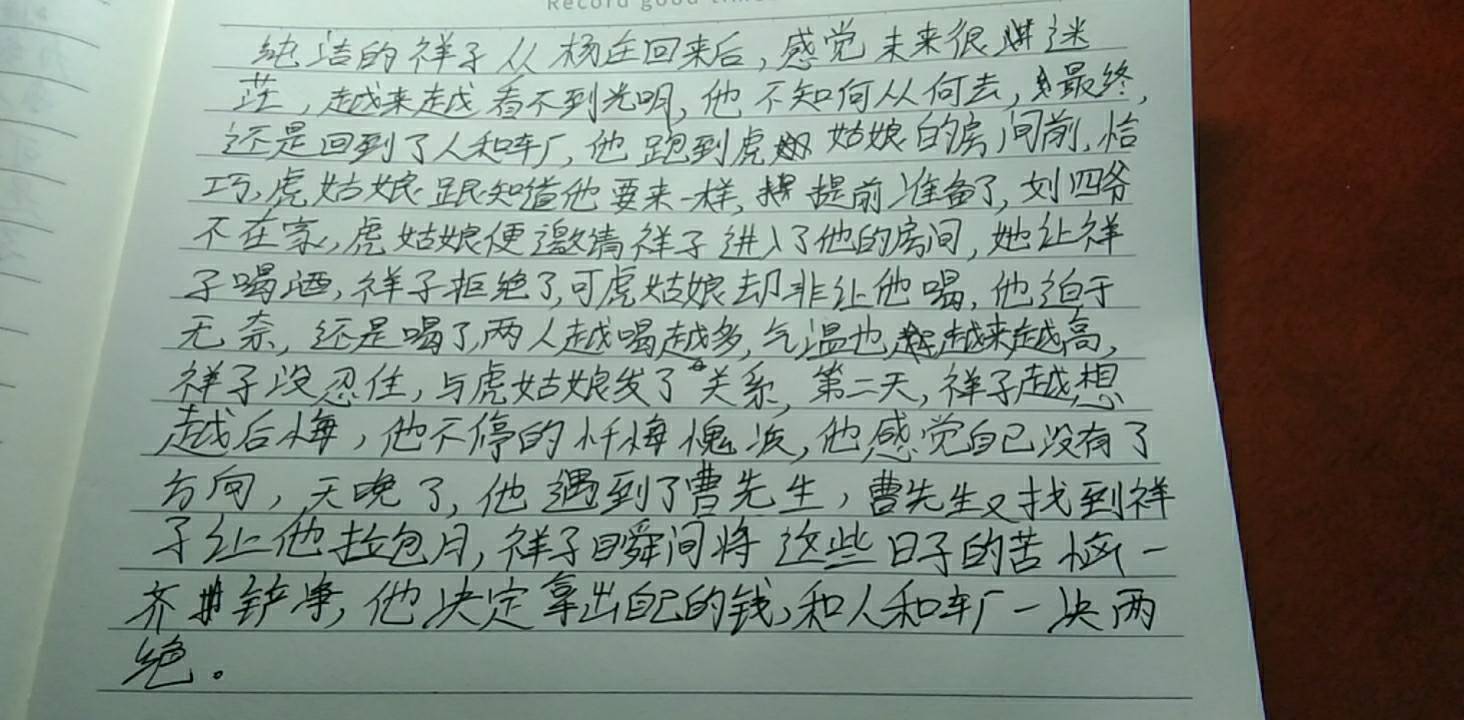 Record good time
纯洁的祥子从杨庄回来后,感觉未来很迷
茫,越来越看不到光明,他不知何从何去,最终,
还是回到了人和车厂,他跑到虎姑娘的房间前,恰
巧,虎姑娘跟知道他要来一样,提前准备了,刘四爷
不在家,虎姑娘便邀请祥子进入了他的房间,她让祥
子喝酒,祥子拒绝了,可虎姑娘却非让他喝,他迫于
无奈,还是喝了,两人越喝越多,气温也越来越高,
祥子没忍住,与虎姑娘发了关系,第二天,祥子越想
越后悔,他不停的忏悔愧疚,他感觉自己没有了
方向,天晚了,他遇到了曹先生,曹先生又找到祥
子让他拉包月,祥子瞬间将这些日子的苦恼一
齐铲净,他决定拿出自己的钱,和人和车厂一决两
绝。